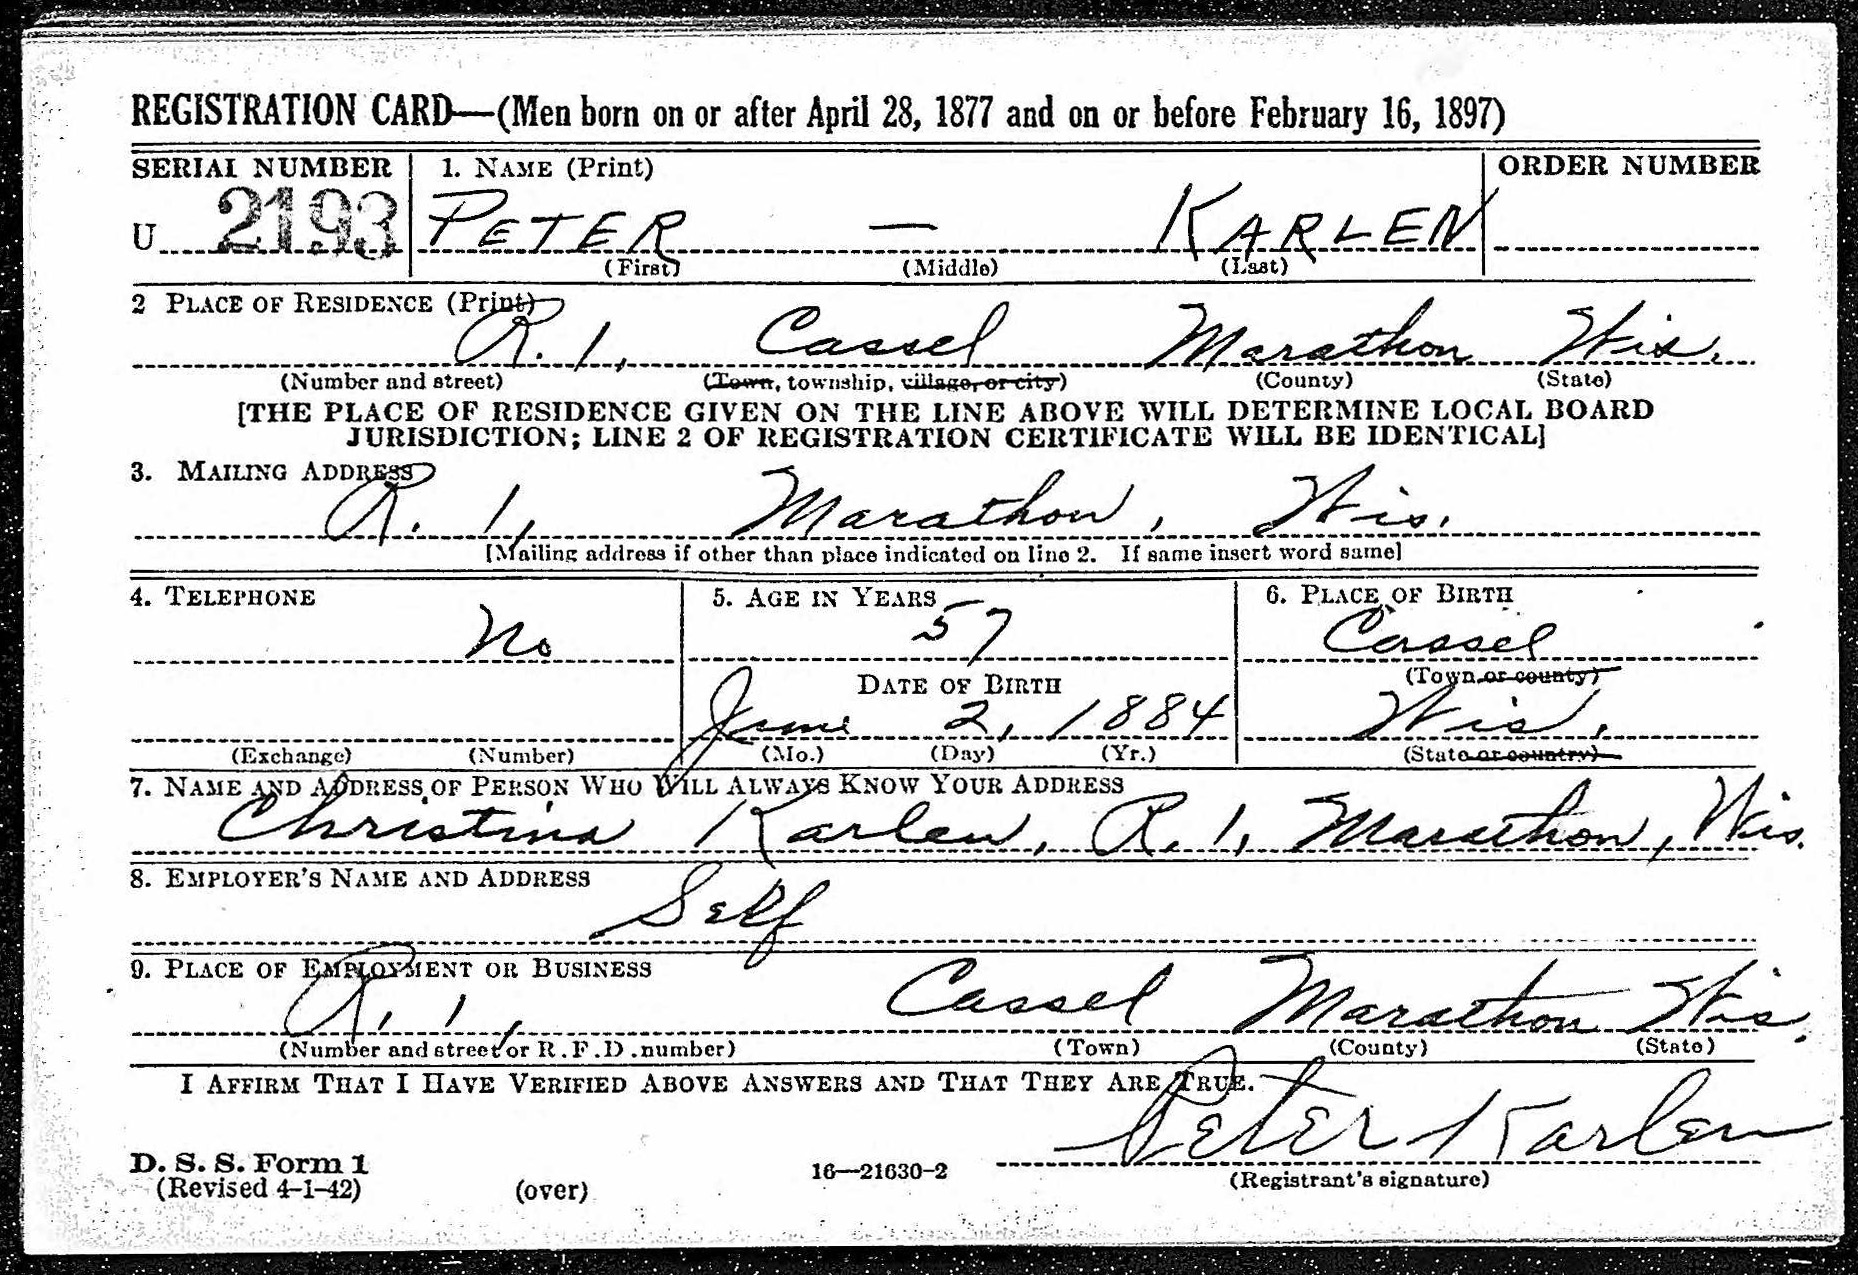 REGISTRATION CARD—(Men born on or after April 28, 1877 and on or before February 16, 1897)
SERIAL NUMBER 1. NAME (Print) ORDER NUMBER
U 2193 PETER — KARLEN
(First) (Middle) (Last)
2 PLACE OF RESIDENCE (Print)
R. 1, Cassel Marathon Wis.
(Number and street) (Town, township, village, or city) (County) (State)
[THE PLACE OF RESIDENCE GIVEN ON THE LINE ABOVE WILL DETERMINE LOCAL BOARD
JURISDICTION; LINE 2 OF REGISTRATION CERTIFICATE WILL BE IDENTICAL]
3. MAILING ADDRESS
R. 1, Marathon, Wis.
[Mailing address if other than place indicated on line 2. If same insert word same]
4. TELEPHONE 5. AGE IN YEARS 6. PLACE OF BIRTH
No 57 Cassel
DATE OF BIRTH (Town or county)
June 2, 1884 Wis.
(Exchange) (Number) (Mo.) (Day) (Yr.) (State or country)
7. NAME AND ADDRESS OF PERSON WHO WILL ALWAYS KNOW YOUR ADDRESS
Christina Karlen, R. 1, Marathon, Wis.
8. EMPLOYER'S NAME AND ADDRESS
Self
9. PLACE OF EMPLOYMENT OR BUSINESS
R. 1, Cassel Marathon Wis.
(Number and street or R.F.D. number) (Town) (County) (State)
I AFFIRM THAT I HAVE VERIFIED ABOVE ANSWERS AND THAT THEY ARE TRUE.
Peter Karlen
D. S. S. Form 1
(Revised 4-1-42) (over) 16—21630-2 (Registrant's signature)